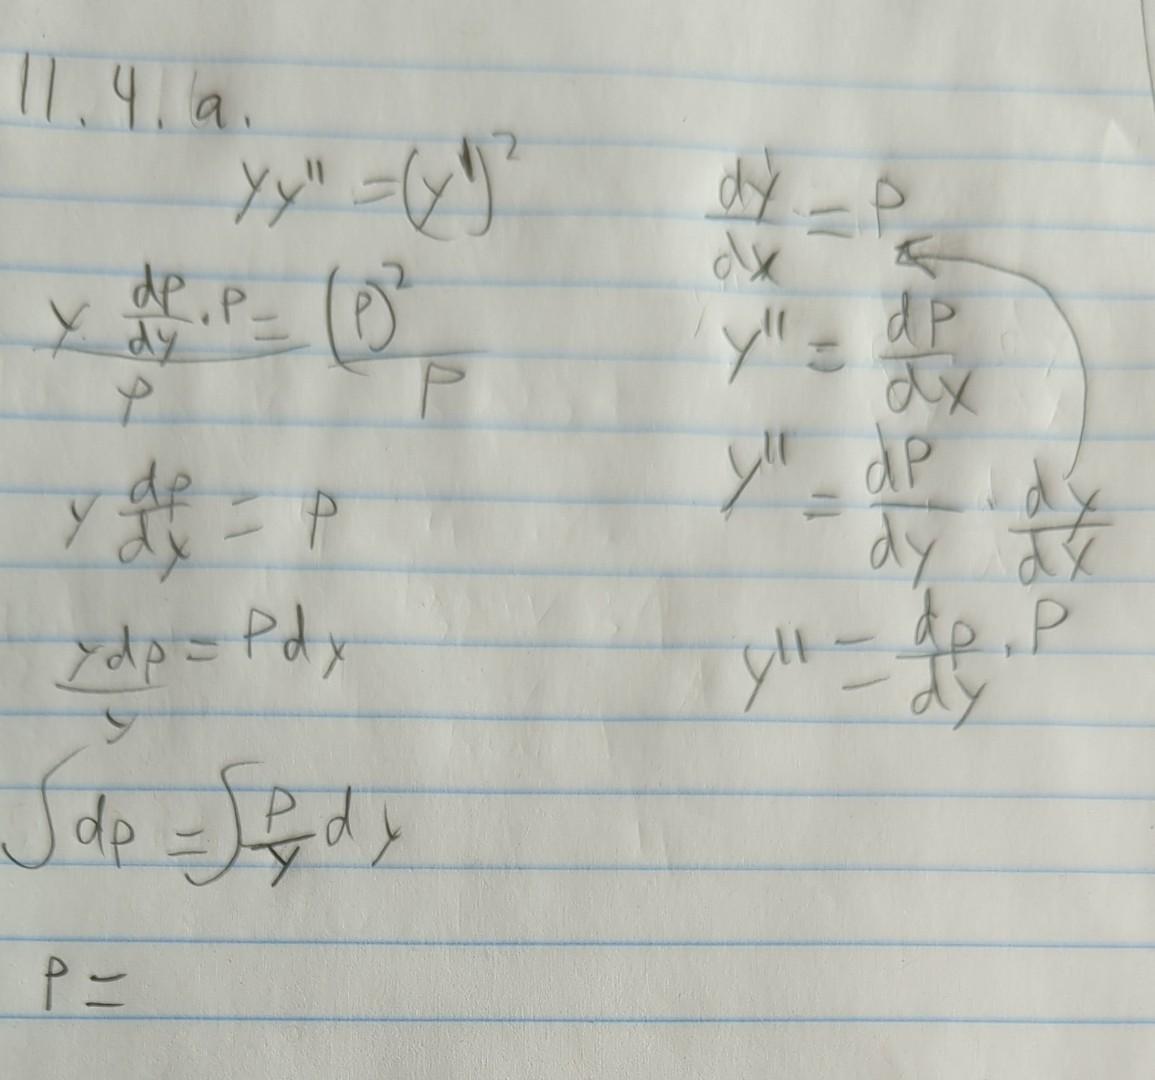 11.4.a.
yy'' = (y')²
y dp/dy · p / p = (p)² / p
y dp/dy = p
y dp / y = p dy
∫ dp = ∫ p/y dy
p =
dy/dx = p
y'' = dp/dx
y'' = dp/dy · dy/dx
y'' = dp/dy · p